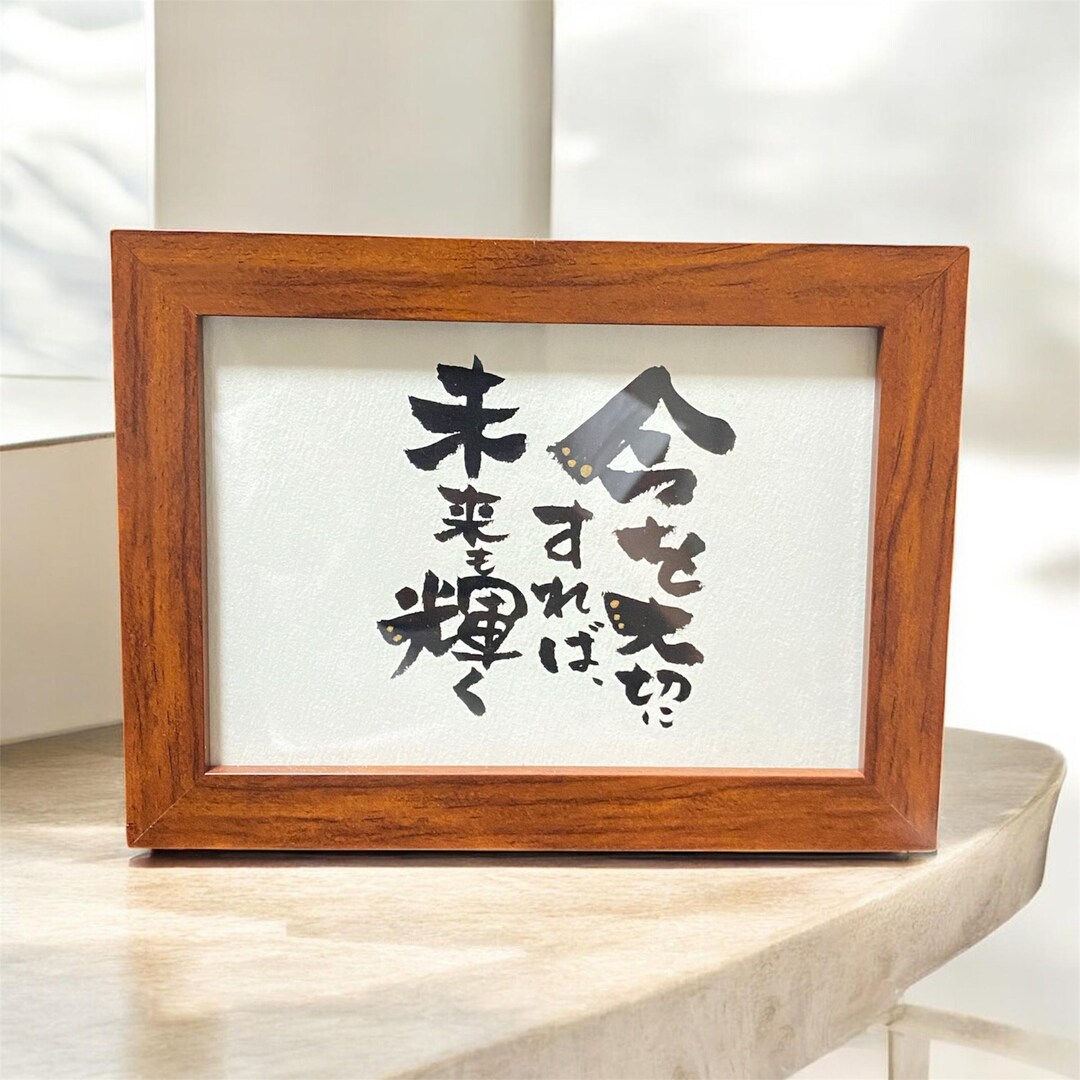 今を大切に
すれば、
未来も輝く